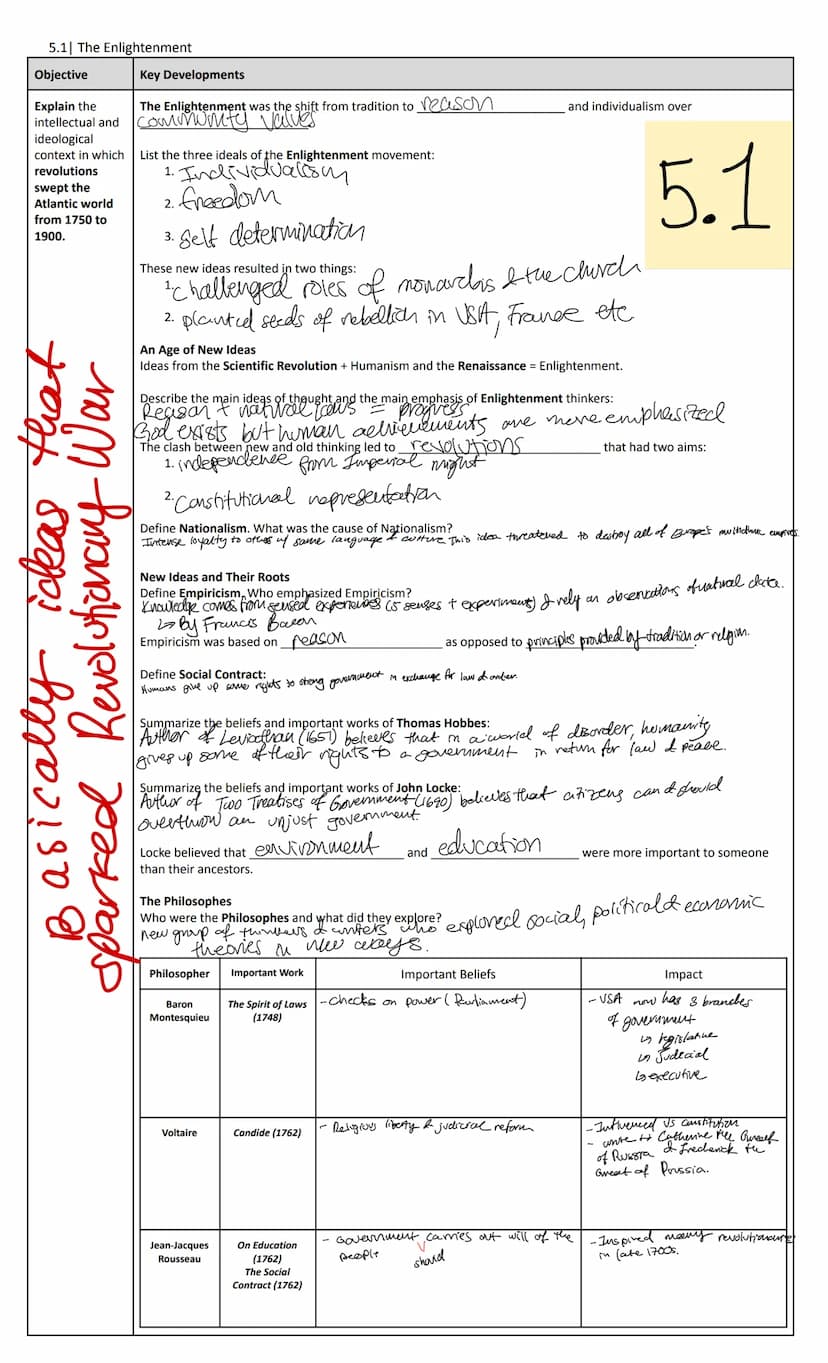 5.1| The Enlightenment
Objective
Key Developments
Explain the
intellectual and
ideological
context in which
revolutions
swept the
Atlantic world
from 1750 to
1900.
The Enlightenment was the shift from tradition to reason and individualism over
community values
List the three ideals of the Enlightenment movement:
1. Individualism
2. freedom
3. Self determination
5.1
These new ideas resulted in two things:
1. challenged roles of monarchs & the church
2. planted seeds of rebellion in USA, France etc
An Age of New Ideas
Ideas from the Scientific Revolution + Humanism and the Renaissance = Enlightenment.
Describe the main ideas of thought and the main emphasis of Enlightenment thinkers:
Reason + natural laws = progress
God exists but human achievements are more emphasized
The clash between new and old thinking led to revolutions that had two aims:
1. independence from Imperial might
2. Constitutional representation
Define Nationalism. What was the cause of Nationalism?
Intense loyalty to others w/ same language & culture This idea threatened to destroy all of Europe's empires
New Ideas and Their Roots
Define Empiricism. Who emphasized Empiricism?
Knowledge comes from sensed experiences (5 senses + experiment) & rely on observations of natural data.
↳ By Francis Bacon
Empiricism was based on reason as opposed to principles provided by tradition or religion.
Define Social Contract:
Humans give up some rights to strong government in exchange for law & order
Summarize the beliefs and important works of Thomas Hobbes:
Author of Leviathan (1651) believes that in a world of disorder, humanity
gives up some of their rights to a government in return for law & peace.
Summarize the beliefs and important works of John Locke:
Author of Two Treatises of Government (1690) believes that citizens can & should
overthrow an unjust government.
Locke believed that environment and education were more important to someone
than their ancestors.
The Philosophes
Who were the Philosophes and what did they explore?
new group of thinkers & writers who explored social, political & economic
theories in new ways.
Basically ideas that
sparked Revolutionary War
Philosopher
Important Work
Important Beliefs
Impact
Baron
Montesquieu
The Spirit of Laws
(1748)
- checks on power (Parliament)
- USA now has 3 branches
of government
↳ legislative
↳ Judicial
↳ executive
Voltaire
Candide (1762)
- Religious liberty & judicial reform
- Influenced US constitution
- wrote to Catherine the Great
of Russia & Frederick the
Great of Prussia.
Jean-Jacques
Rousseau
On Education
(1762)
The Social
Contract (1762)
- Government carries out will of the
people
should
- Inspired many
in late 1700s.